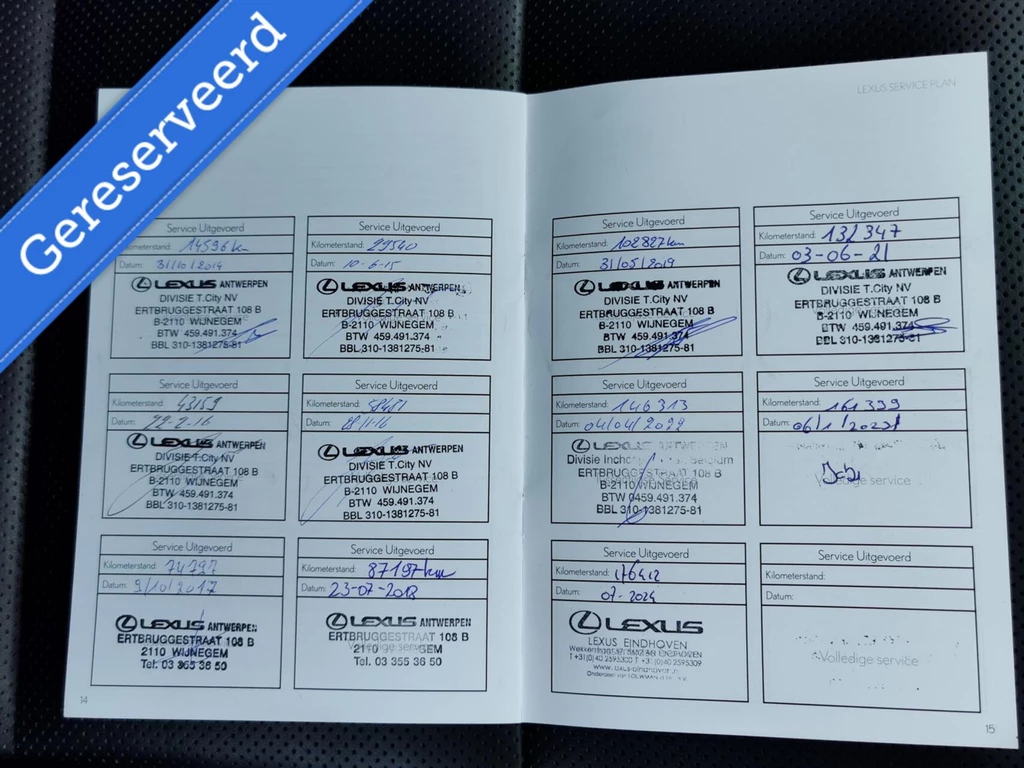 Gereserveerd
LEXUS SERVICE PLAN
Service Uitgevoerd
Kilometerstand: 14596km
Datum: 31/10/2014
LEXUS ANTWERPEN
DIVISIE T.City NV
ERTBRUGGESTRAAT 108 B
B-2110 WIJNEGEM
BTW 459.491.374
BBL 310-1381275-81
Service Uitgevoerd
Kilometerstand: 29540
Datum: 10-6-15
LEXUS ANTWERPEN
DIVISIE T.City NV
ERTBRUGGESTRAAT 108 B
B-2110 WIJNEGEM
BTW 459.491.374
BBL 310-1381275-81
Service Uitgevoerd
Kilometerstand: 43159
Datum: 22-2-16
LEXUS ANTWERPEN
DIVISIE T.City NV
ERTBRUGGESTRAAT 108 B
B-2110 WIJNEGEM
BTW 459.491.374
BBL 310-1381275-81
Service Uitgevoerd
Kilometerstand: 58481
Datum:
LEXUS ANTWERPEN
DIVISIE T.City NV
ERTBRUGGESTRAAT 108 B
B-2110 WIJNEGEM
BTW 459.491.374
BBL 310-1381275-81
Service Uitgevoerd
Kilometerstand:
Datum: 9/10/2017
LEXUS ANTWERPEN
ERTBRUGGESTRAAT 108 B
2110 WIJNEGEM
Tel. 03 355 36 50
Service Uitgevoerd
Kilometerstand: 87197km
Datum: 23-07-2018
LEXUS ANTWERPEN
ERTBRUGGESTRAAT 108 B
2110 GEM
Tel. 03 355 36 50
14
Service Uitgevoerd
Kilometerstand: 102827km
Datum: 31/05/2019
LEXUS ANTWERPEN
DIVISIE T.City NV
ERTBRUGGESTRAAT 108 B
B-2110 WIJNEGEM
BTW 459.491.374
BBL 310-1381275-81
Service Uitgevoerd
Kilometerstand: 132347
Datum: 03-06-21
LEXUS ANTWERPEN
DIVISIE T.City NV
ERTBRUGGESTRAAT 108 B
B-2110 WIJNEGEM
BTW 459.491.374
BBL 310-1381275-81
Service Uitgevoerd
Kilometerstand: 146313
Datum: 04/04/2022
LEXUS ANTWERPEN
Divisie Belgium
ERTBRUGGESTRAAT 108 B
B-2110 WIJNEGEM
BTW 0459.491.374
BBL 310-1381275-81
Service Uitgevoerd
Kilometerstand: 161399
Datum:
Volledige service
Service Uitgevoerd
Kilometerstand:
Datum: 07-2024
LEXUS
LEXUS EINDHOVEN
Service Uitgevoerd
Kilometerstand:
Datum:
Volledige service
15